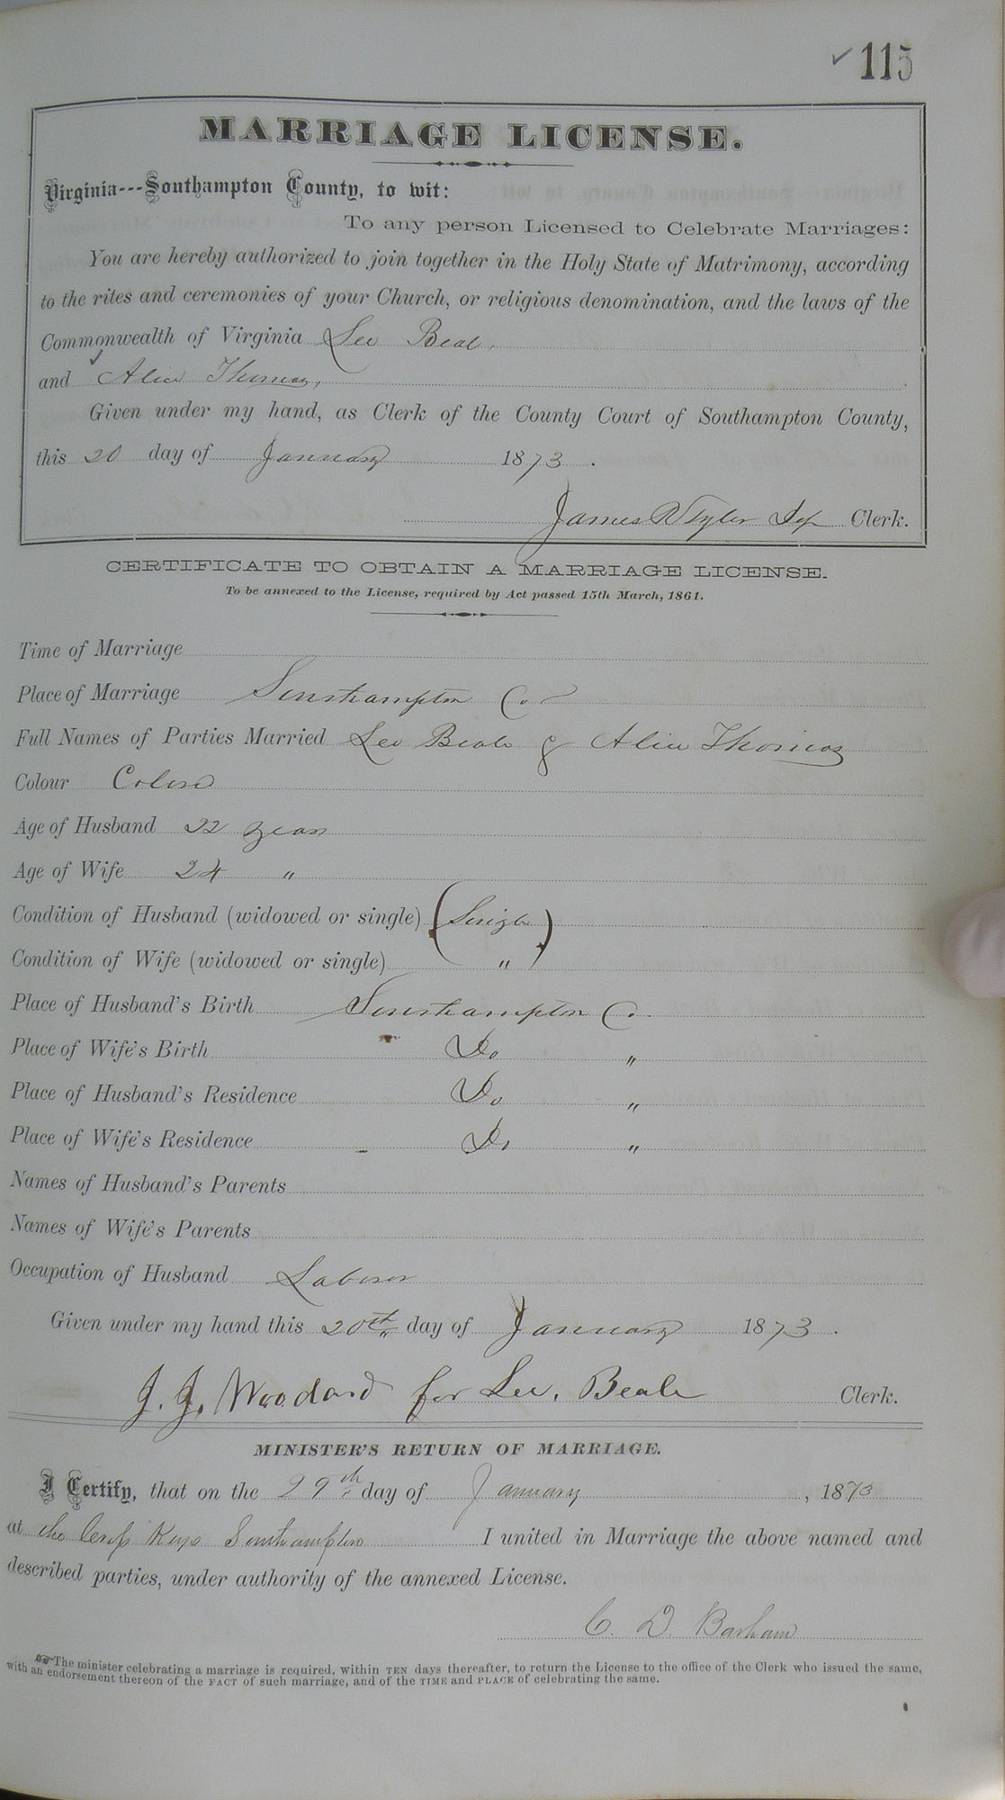 ✓ 115
MARRIAGE LICENSE.
Virginia---Southampton County, to wit:
To any person Licensed to Celebrate Marriages:
You are hereby authorized to join together in the Holy State of Matrimony, according
to the rites and ceremonies of your Church, or religious denomination, and the laws of the
Commonwealth of Virginia Lee Beale,
and Alice Thomas,
Given under my hand, as Clerk of the County Court of Southampton County,
this 20 day of January 1873.
James R Tyler Dep Clerk.
CERTIFICATE TO OBTAIN A MARRIAGE LICENSE.
To be annexed to the License, required by Act passed 15th March, 1861.
Time of Marriage
Place of Marriage Southampton Co
Full Names of Parties Married Lee Beale & Alice Thomas
Colour Colord
Age of Husband 22 years
Age of Wife 24 "
Condition of Husband (widowed or single) (Single)
Condition of Wife (widowed or single) "
Place of Husband's Birth Southampton Co.
Place of Wife's Birth Do "
Place of Husband's Residence Do "
Place of Wife's Residence Do "
Names of Husband's Parents
Names of Wife's Parents
Occupation of Husband Laborer
Given under my hand this 20th day of January 1873.
J. J. Woodard for Lee. Beale Clerk.
MINISTER'S RETURN OF MARRIAGE.
I Certify, that on the 29th day of January, 1873
at the Cross Keys Southampton I united in Marriage the above named and
described parties, under authority of the annexed License.
C. D. Barham
The minister celebrating a marriage is required, within TEN days thereafter, to return the License to the office of the Clerk who issued the same,
with an endorsement thereon of the FACT of such marriage, and of the TIME and PLACE of celebrating the same.